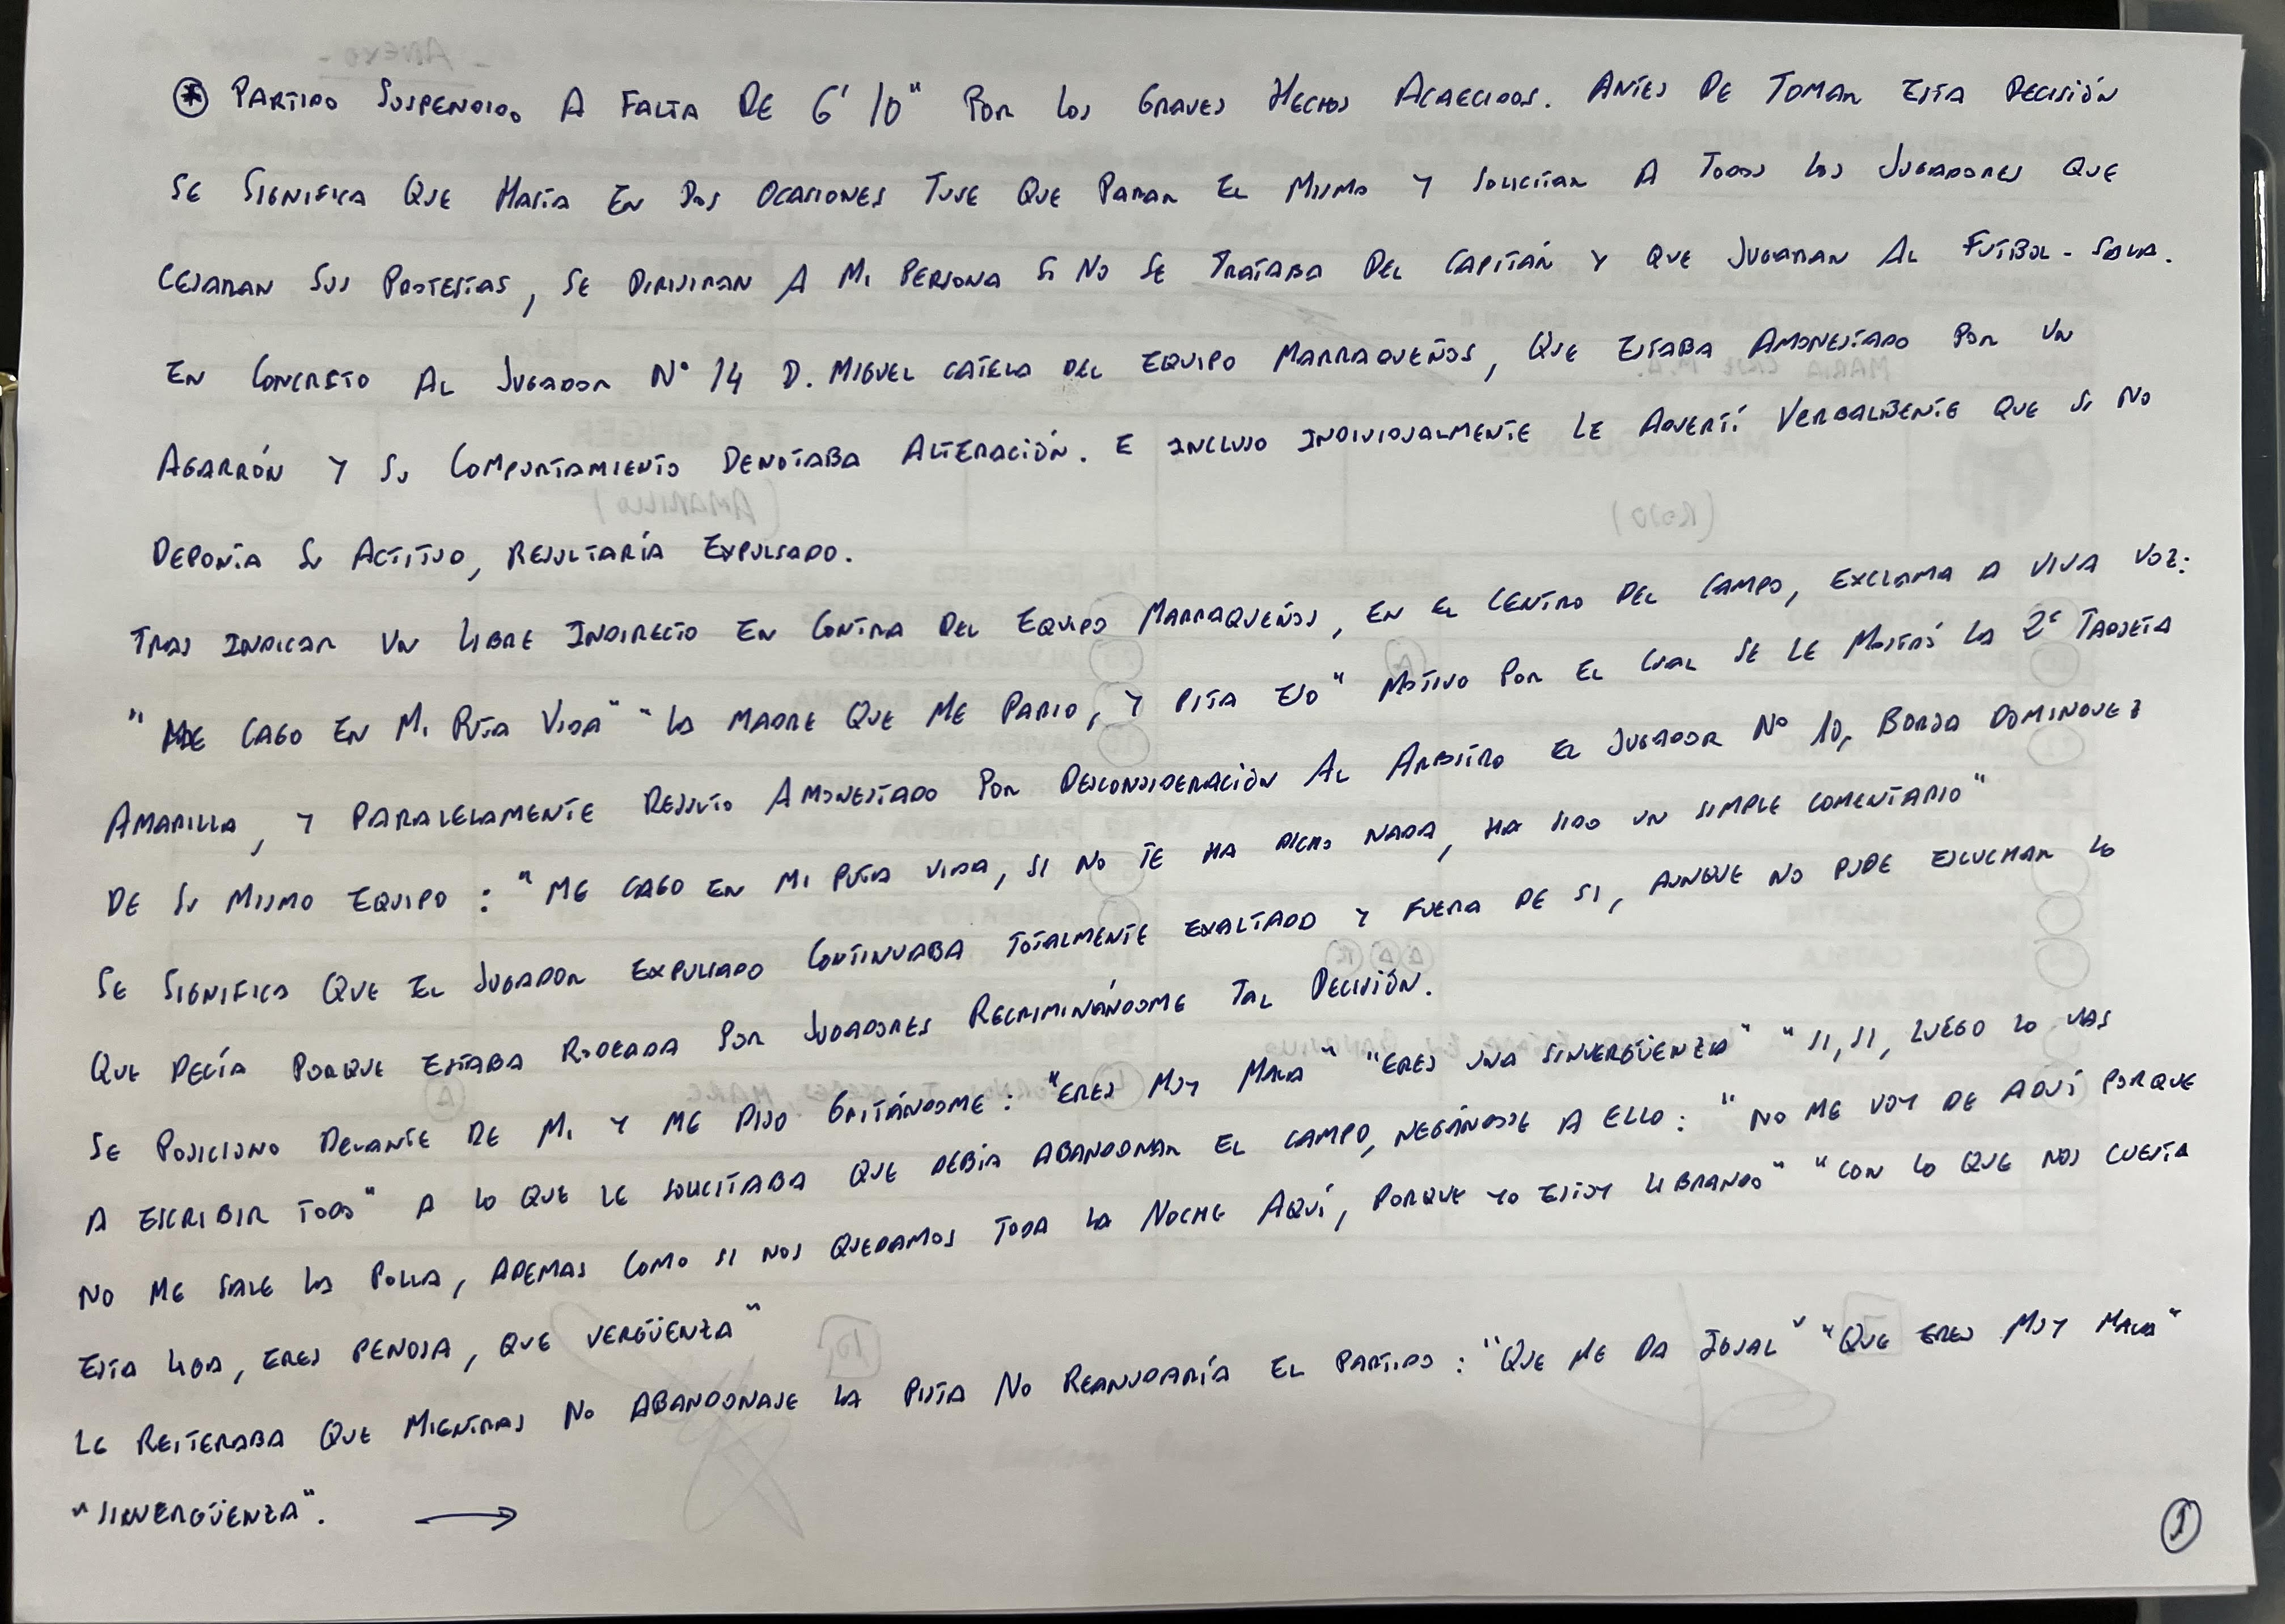 * PARTIDO SUSPENDIDO A FALTA DE 6' 10" POR LOS GRAVES HECHOS ACAECIDOS. ANTES DE TOMAR ESTA DECISIÓN
SE SIGNIFICA QUE HASTA EN DOS OCASIONES TUVE QUE PARAR EL MISMO Y SOLICITAR A TODOS LOS JUGADORES QUE
CESARAN SUS PROTESTAS, SE DIRIJIRAN A MI PERSONA SI NO SE TRATABA DEL CAPITÁN Y QUE JUGARAN AL FUTBOL-SALA.
EN CONCRETO AL JUGADOR Nº 14 D. MIGUEL CATELA DEL EQUIPO MARRAQUEÑOS, QUE ESTABA AMONESTADO POR UN
AGARRÓN Y SU COMPORTAMIENTO DENOTABA ALTERACIÓN. E INCLUSO INDIVIDUALMENTE LE ADVERTÍ VERBALMENTE QUE SI NO
DEPONÍA SU ACTITUD, RESULTARÍA EXPULSADO.
TRAS INDICAR UN LIBRE INDIRECTO EN CONTRA DEL EQUIPO MARRAQUEÑOS, EN EL CENTRO DEL CAMPO, EXCLAMA A VIVA VOZ:
"ME CAGO EN MI PUTA VIDA" "LA MADRE QUE ME PARIO, Y PITA ESO" MOTIVO POR EL CUAL SE LE MOSTRÓ LA 2ª TARJETA
AMARILLA, Y PARALELAMENTE RESULTO AMONESTADO POR DESCONSIDERACIÓN AL ARBITRO EL JUGADOR Nº 10, BORJA DOMINGUEZ
DE SU MISMO EQUIPO: "ME CAGO EN MI PUTA VIDA, SI NO TE HA DICHO NADA, HA SIDO UN SIMPLE COMENTARIO"
SE SIGNIFICA QUE EL JUGADOR EXPULSADO CONTINUABA TOTALMENTE EXALTADO Y FUERA DE SI, AUNQUE NO PUDE ESCUCHAR LO
QUE DECÍA PORQUE ESTABA RODEADA POR JUGADORES RECRIMINÁNDOME TAL DECISIÓN.
SE POSICIONO DELANTE DE MI Y ME DIJO GRITÁNDOME: "ERES MUY MALA" "ERES UNA SINVERGÜENZA" "SI, SI, LUEGO LO VAS
A ESCRIBIR TODO" A LO QUE LE SOLICITABA QUE DEBIA ABANDONAR EL CAMPO, NEGÁNDOSE A ELLO: "NO ME VOY DE AQUÍ PORQUE
NO ME SALE LA POLLA, ADEMAS COMO SI NOS QUEDAMOS TODA LA NOCHE AQUÍ, PORQUE YO ESTOY LIBRANDO" "CON LO QUE NOS CUESTA
ESTA LIGA, ERES PENOSA, QUE VERGÜENZA"
LE REITERABA QUE MIENTRAS NO ABANDONASE LA PISTA NO REANUDARÍA EL PARTIDO: "QUE ME DA IGUAL" "QUE ERES MUY MALA"
"SINVERGÜENZA". →
1